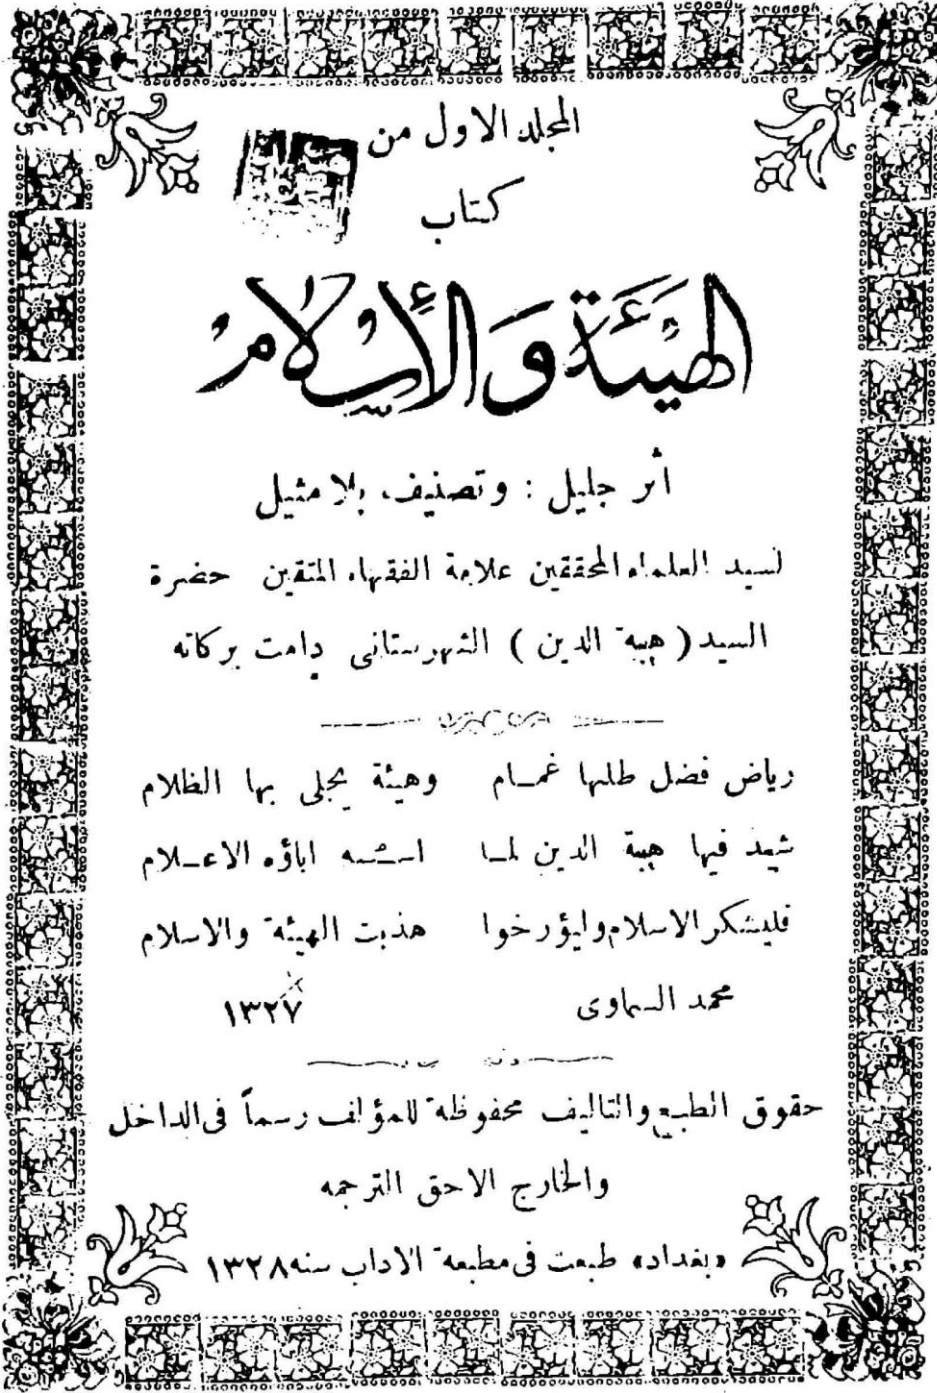 المجلد الاول من
كتاب
الهَيْئَةُ وَالْإِسْلَامُ
أثر جليل : وتصنيف بلا مثيل
لسيد العلماء المحققين علامة الفقهاء المتقين حضرة
السيد ( هبة الدين ) الشهرستانى دامت بركاته
رياض فضل طلها غمــام وهيئة يجلى بها الظلام
شيد فيها هبة الدين لمــا اسسه اباؤه الاعــلام
فليشكر الاسلام وليؤرخوا هذبت الهيئة والاسلام
محمد السماوى ١٣٢٧
حقوق الطبع والتاليف محفوظة للمؤلف رسماً فى الداخل
والخارج الاحق الترجمه
«بغداد» طبعت فى مطبعة الاداب سنه ١٣٢٨